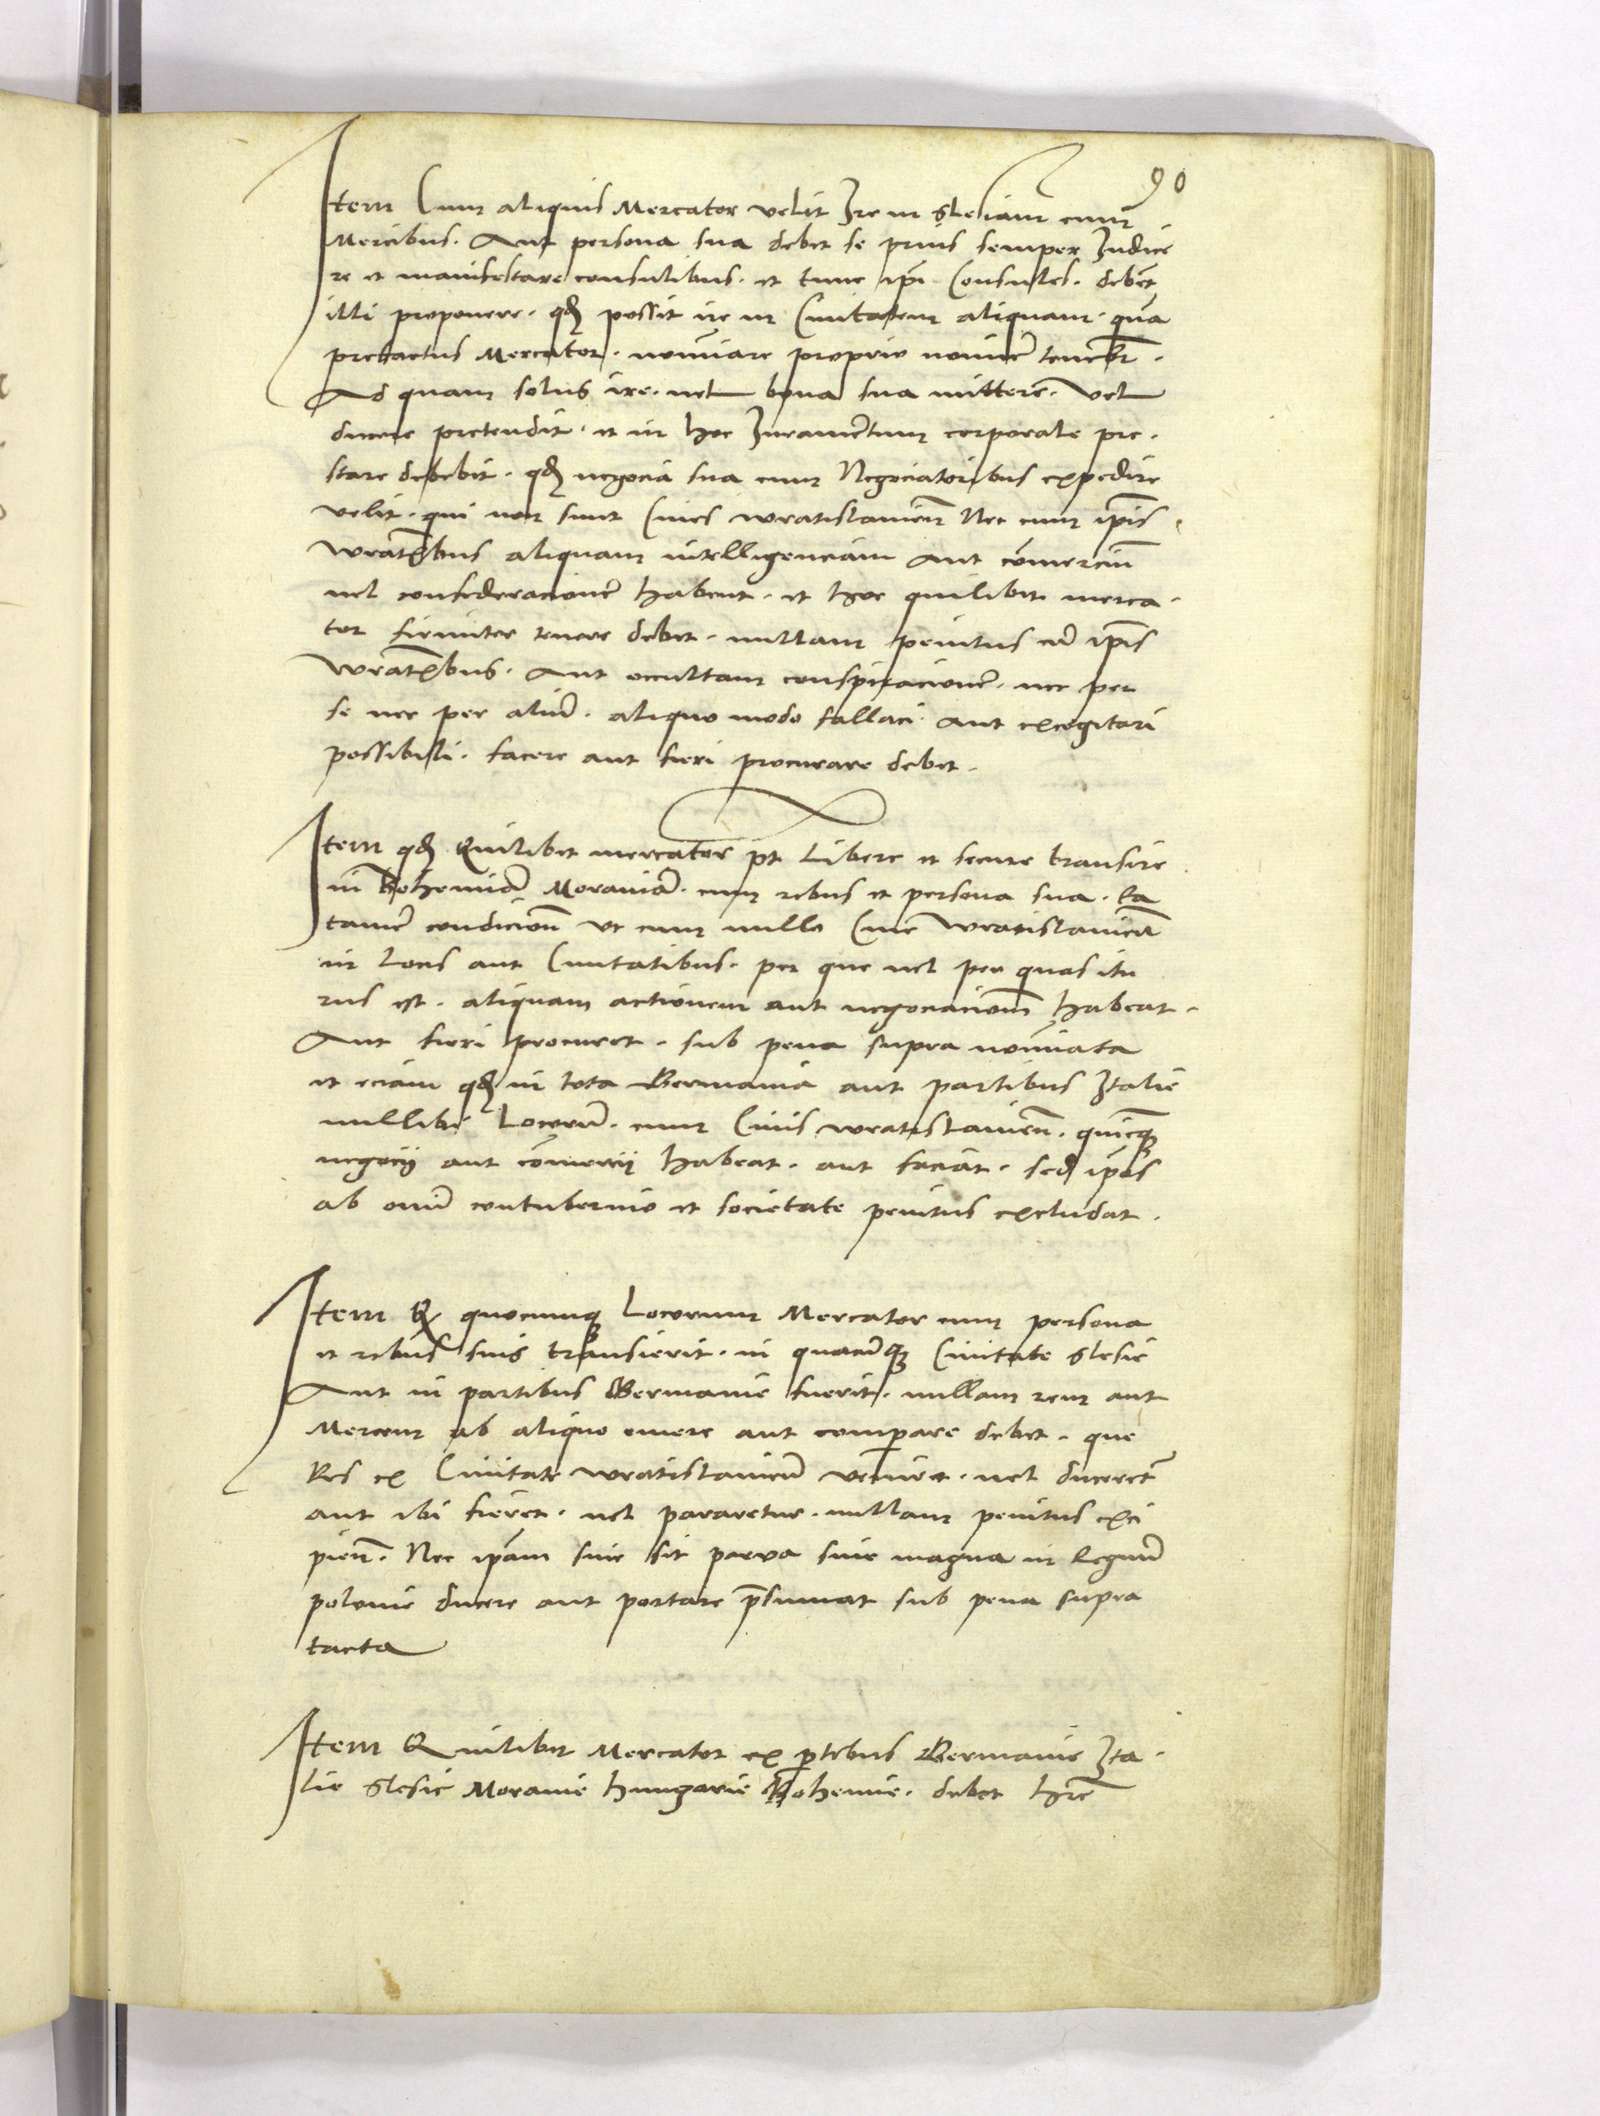 90
Item Cum aliquis Mercator velit Ire in Slesiam cum
Mercibus. Aut persona sua debet se prius semper Indice
re et manifestare consulibus. et tunc ip̄i Consules. debēt
illi proponere. qđ possit ire in Ciuitatem aliquam. quā
pretactus Mercator. noīare proprio noīē tenebr̄.
Ad quam solus ire. uel bona sua mittere. vel
ducere pretendit. et in hoc Iuramentum corporale pre.
stare debebit. qđ negocia sua cum Negociatoribus expedire
velit. qui non sunt Ciues wratislauieñ Nec cum ip̄is
wratn̄bus aliquam intelligenciam aut cōmerciū
uel confederacionē habent. et hoc quilibet merca.
tor firmiter tenere debet. nullam penitus cū ip̄is
wratn̄bus. Aut occultam conspiracionē. nec per
se nec per aliū. aliquo modo fallaci aut excogitari
possibili. facere aut fieri procurare debet.
Item qđ Quilibet mercator pt Libere et secure transire
in Bohemiā Morauiā. cum rebus et persona sua. Ea
tamē condicioñ vt cum nullo Ciue wratislauieñ
in Locis aut Ciuitatibus. per que uel per quas itu
rus est. aliquam actionem aut negociacioñm habeat.
Aut fieri procuret. sub pena supra noīata
et eciam qđ in tota Germania aut partibus Italie
nullibi Locorū. cum Ciuis wratislauieñ. quicq̄
negocij aut cōmercij habeat. aut faciat. sed ip̄os
ab om̄i contubernio et societate penitus excludat.
Item Ex quocumq̧ Locorum Mercator cum persona
et rebus suis transierit. in quacūq̧ Ciuitate Slesie
Aut in partibus Germanie fuerit. nullam rem aut
Mercem ab aliquo emere aut comparare debet. que
Res ex Ciuitate wratislauieñ veniret. uel ducerēt
aut ibi fieret. uel pararetur. nullam penitus exci
pieñ. Nec ip̄am siue sit parva siue magna in Regnū
polonie ducere aut portare p̄sumat sub pena supra
tacta
Item Quilibet Mercator ex ptibus Germanie Ita.
lie Slesie Moravie hungarie Bohemie. debet hr̄e